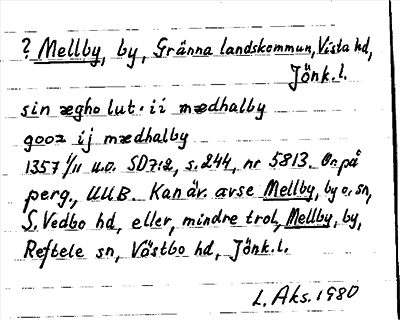 ? Mellby, by, Gränna landskommun, Vista hd,
Jönk.l.
sin ægho lut · ii mædhalby
gooz ij mædhalby
1357 1/11 u.o. SD7:2, s. 244, nr 5813. Or på
perg., UUB. Kan äv. avse Mellby, by o. sn,
S. Vedbo hd, eller, mindre trol, Mellby, by,
Reftele sn, Västbo hd, Jönk.l.
L. Aks. 1980